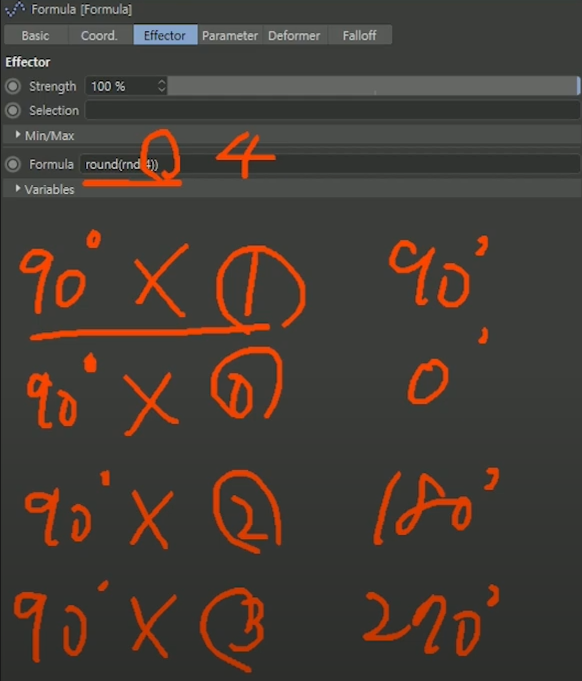 Formula [Formula]
Basic Coord. Effector Parameter Deformer Falloff
Effector
Strength 100 %
Selection
Min/Max
Formula round(rnd(4)) 4
Variables
90° X 1 90°
90° X 0 0°
90° X 2 180°
90° X 3 270°